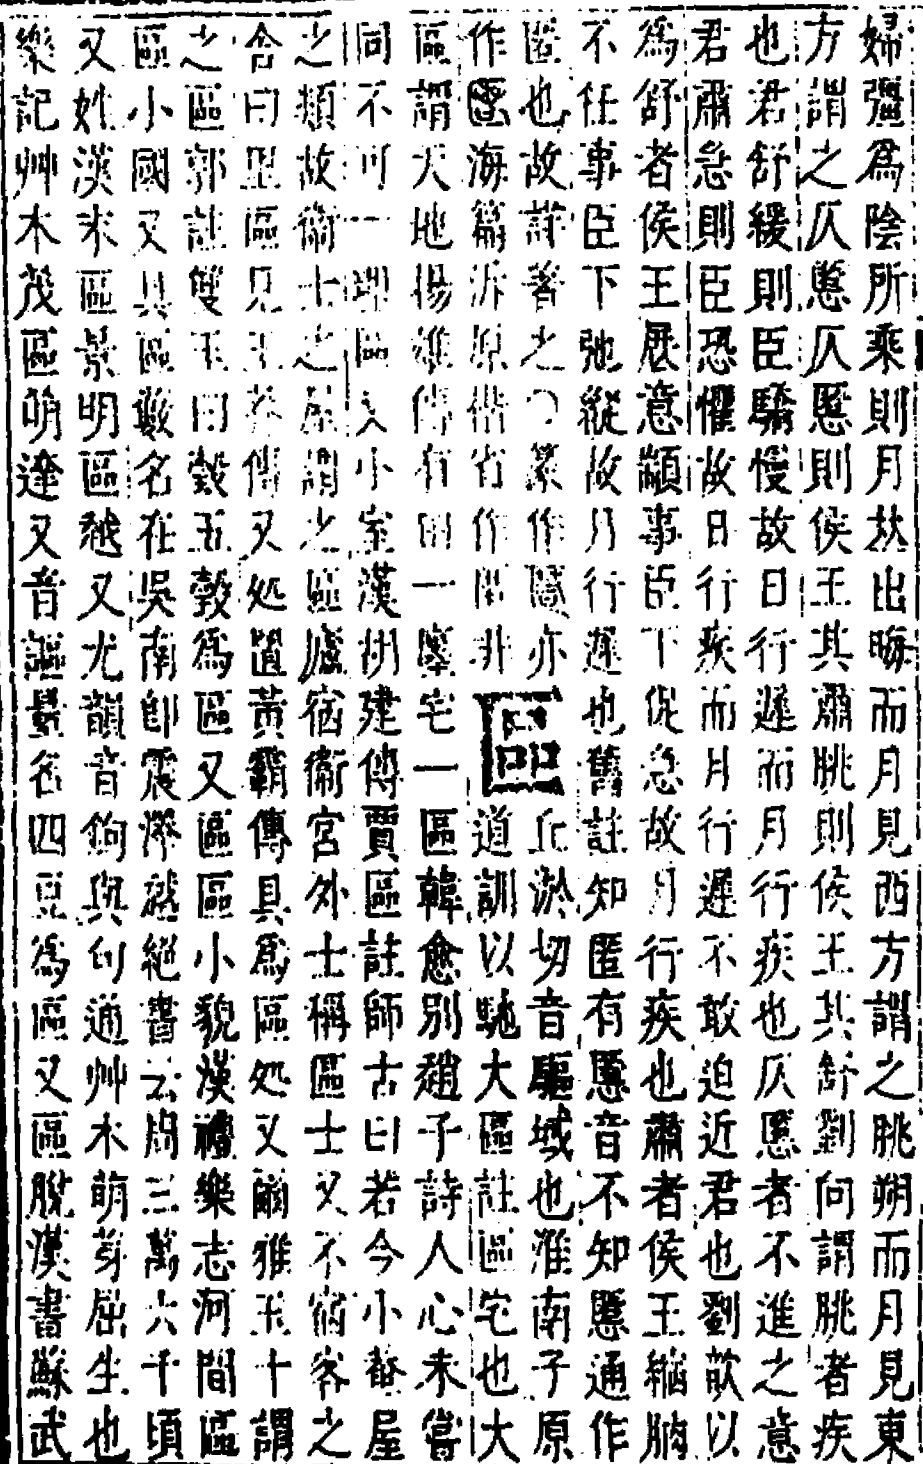 婦彊為陰所乘則月𡘋出晦而月見西方謂之朓朔而月見東
方謂之仄慝仄慝則侯王其肅朓則侯王其舒劉向謂朓者疾
也君舒緩則臣驕慢故日行遲而月行疾也仄慝者不進之意
君肅急則臣恐懼故日行疾而月行遲不敢迫近君也劉歆以
為舒者侯王展意顓事臣下促急故月行疾也肅者侯王縮朒
不任事臣下弛縱故月行遲也舊註知匿有慝音不知慝通作
匿也故詳著之 篆作 亦
作 海篇 原 省作 非區丘淤切音驅域也淮南子原
道訓以馳大區註區宅也大
區謂天地揚雄傳有田一㕓宅一區韓愈別趙子詩人心未嘗
同不可一理區又小室漢胡建傳賈區註師古曰若今小菴屋
之類故衞士之屋謂之區廬宿衞宮外士稱區士又不宿客之
舍曰 區見王莽傳又処置黃霸傳具為區処又爾雅玉十謂
之區郭註雙玉曰瑴五瑴為區又區區小貌漢禮樂志河間區
區小國又具區藪名在吳南即震澤越絕書云周三萬六千頃
又姓漢末區景明區越又尤韻音鉤與句通艸木萌芽屈生也
樂記艸木茂區萌達又音謳量名四豆為區又區脫漢書蘇武